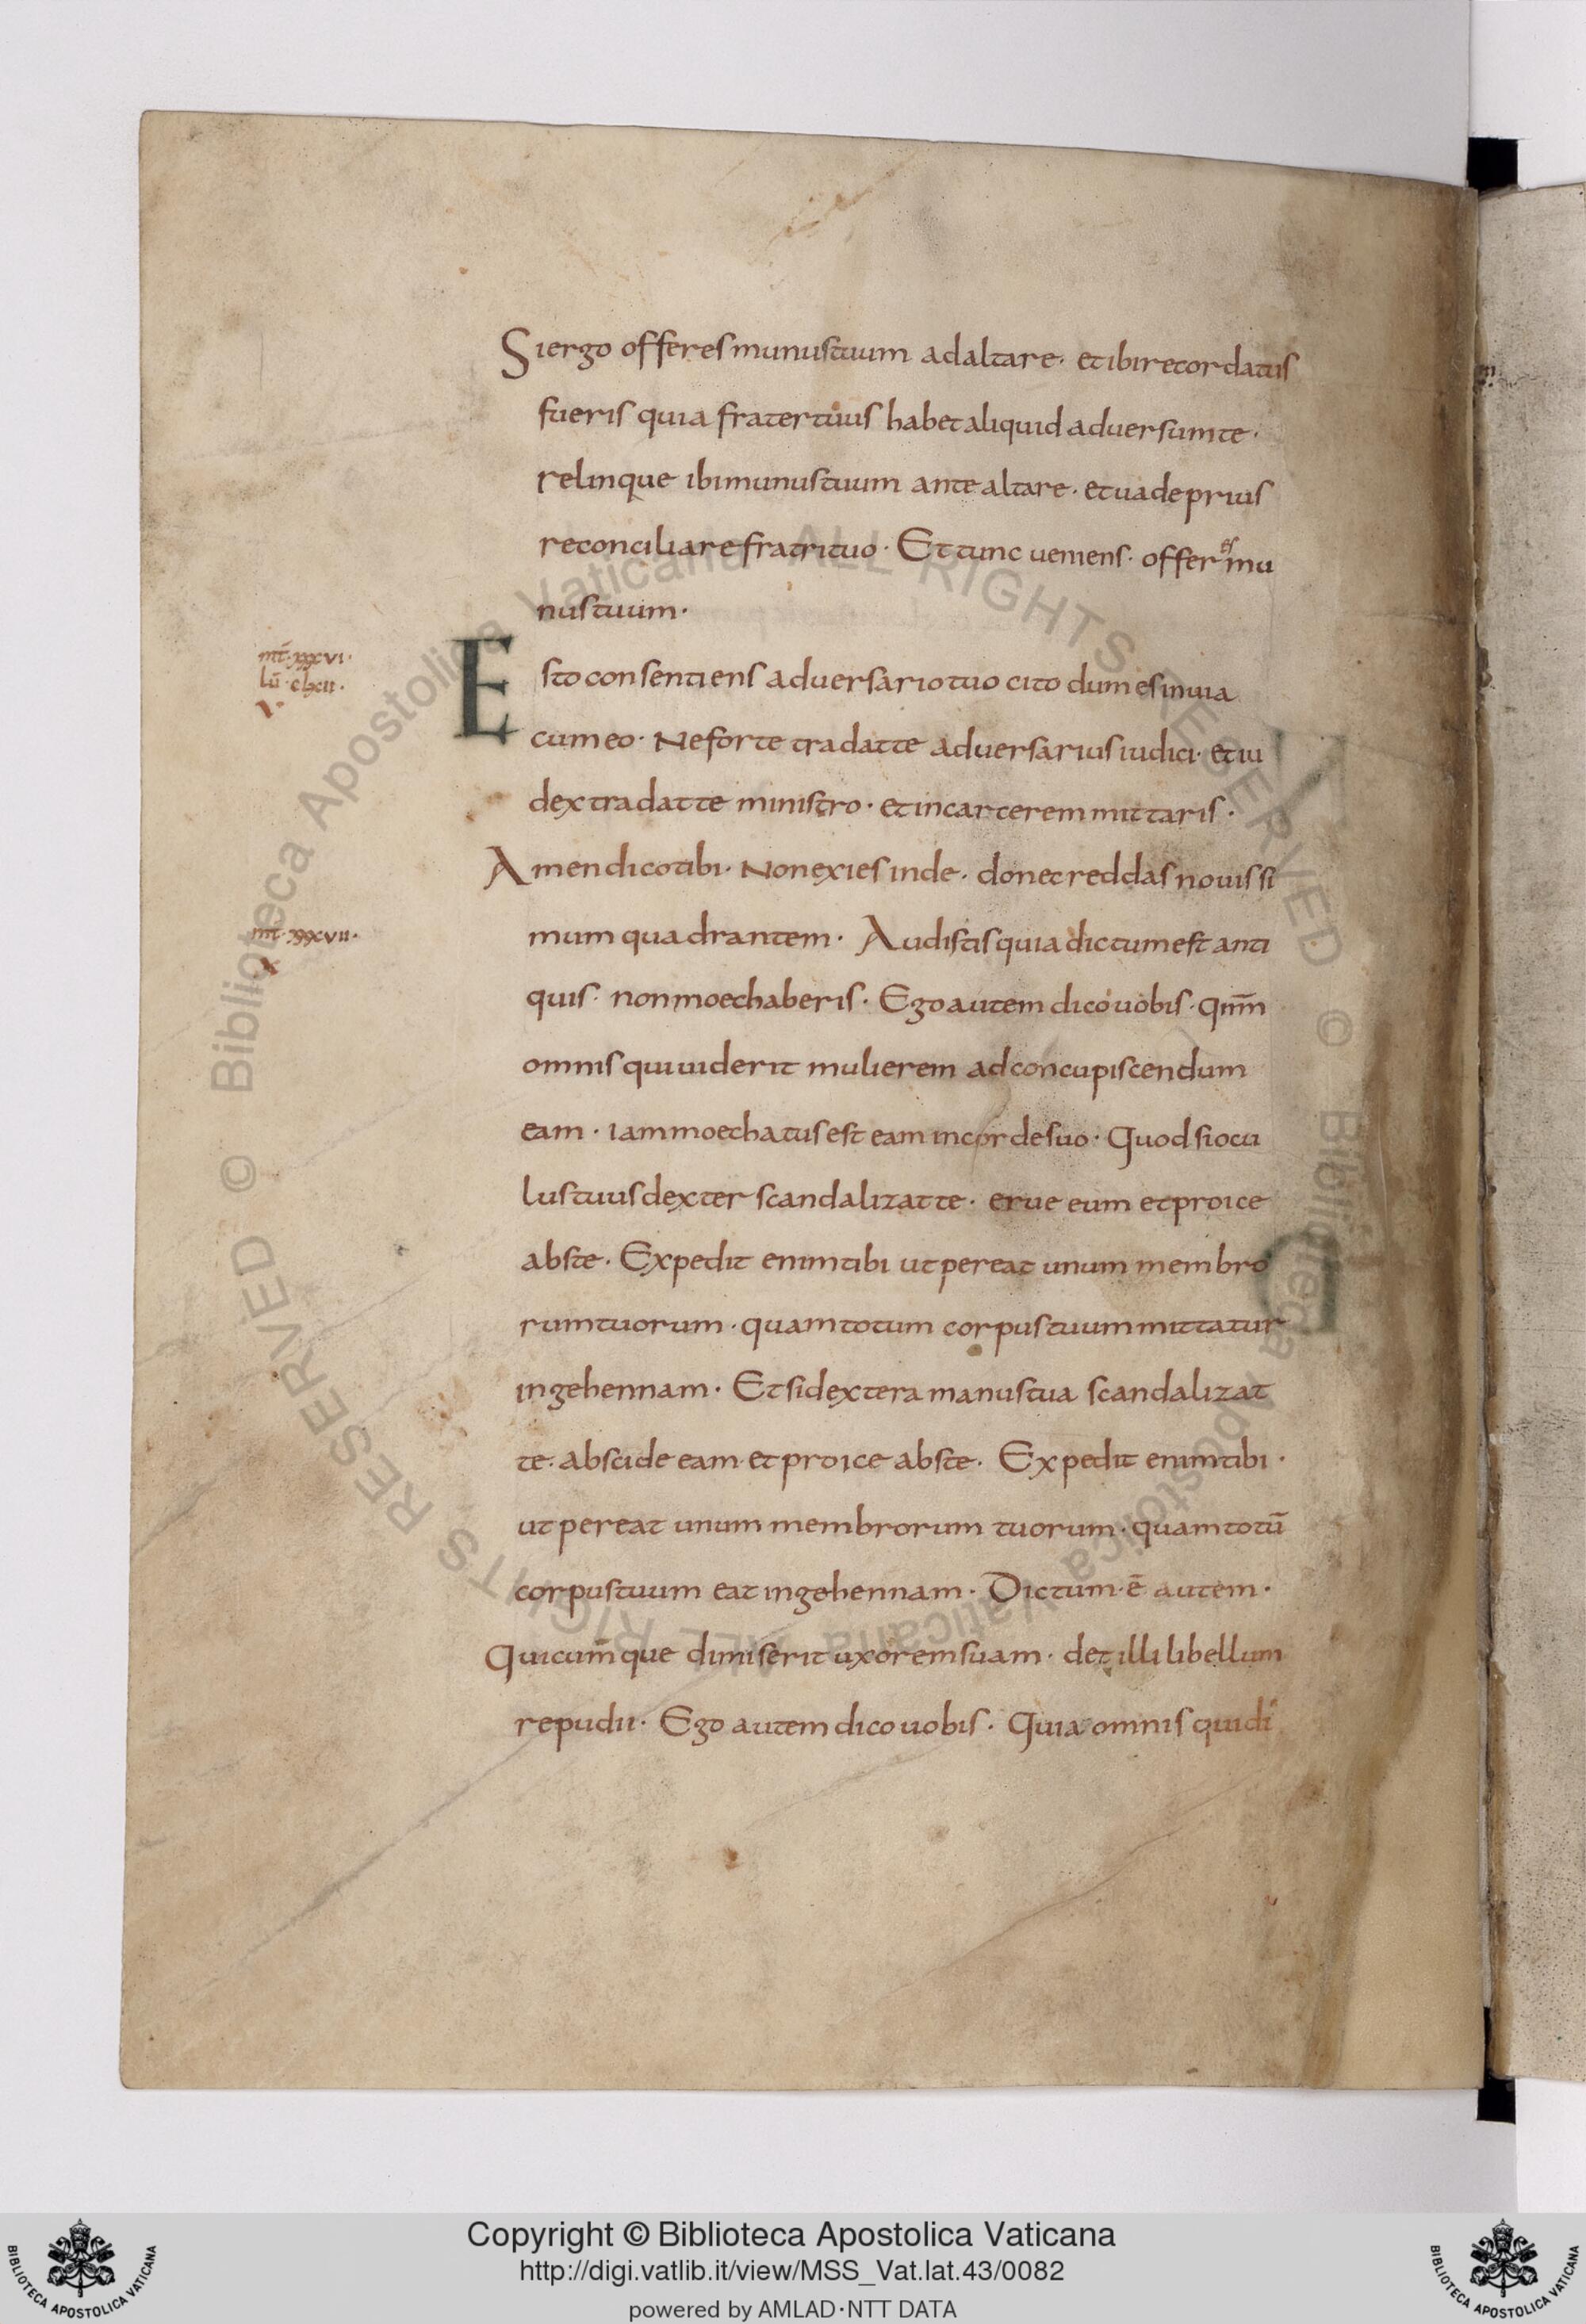 Siergo offeres munustuum adaltare· etibirecordatus
fueris quia fratertuus habetaliquid aduersumte·
relinque ibimunustuum antealtare· etuadeprius
reconciliarefratrituo· Et tunc ueniens· offer es mu
nustuum·
mt̄·xxxvi·
lū·clxii·
Estoconsentiens aduersariotuo cito dumesinuia
cumeo· Neforte tradatte aduersariusiudici· etiu
dextradatte ministro· etincarceremmittaris·
Amendicotibi· Nonexiesinde· donecreddasnouissi
mt̄·xxxvii·
x
mumquadrantem· Audistisquiadictumest anti
quis· nonmoechaberis· Egoautem dicouobis· qnm̄
omnisquiuiderit mulierem adconcupiscendum
eam· iammoechatusest eam incordesuo· Quodsiocu
lustuusdexter scandalizatte· erue eum etproice
abste· Expedit enimtibi utpereat unum membro
rumtuorum· quamtotum corpustuummittatur
ingehennam· Etsidexteramanustua scandalizat
te· abscide eam· etproice abste· Expedit enimtibi·
utpereat unum membrorum tuorum· quamtotū
corpustuum eatingehennam· Dictum·ē autem·
Quicumque dimiserituxoremsuam· detillilibellum
repudii· Ego autemdicouobis· Quia omnis quidi
Biblioteca Apostolica Vaticana ALL RIGHTS RESERVED ©
Biblioteca Apostolica Vaticana ALL RIGHTS RESERVED ©
Copyright © Biblioteca Apostolica Vaticana
http://digi.vatlib.it/view/MSS_Vat.lat.43/0082
powered by AMLAD·NTT DATA
BIBLIOTECA APOSTOLICA VATICANA
BIBLIOTECA APOSTOLICA VATICANA